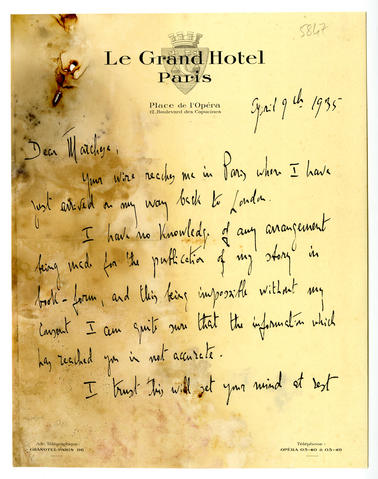 5847
Le Grand Hotel
Paris
Place de l'Opéra
12, Boulevard des Capucines
April 9th 1935
Dear Marchese,
Your wire reaches me in Paris where I have
just arrived on my way back to London.
I have no knowledge of any arrangement
being made for the publication of my story in
book-form, and this being impossible without my
consent I am quite sure that the information which
has reached you is not accurate.
I trust this will set your mind at rest
Adr. Télégraphique:
GRANOTEL-PARIS 96
Téléphone:
OPÉRA 03-40 à 03-49